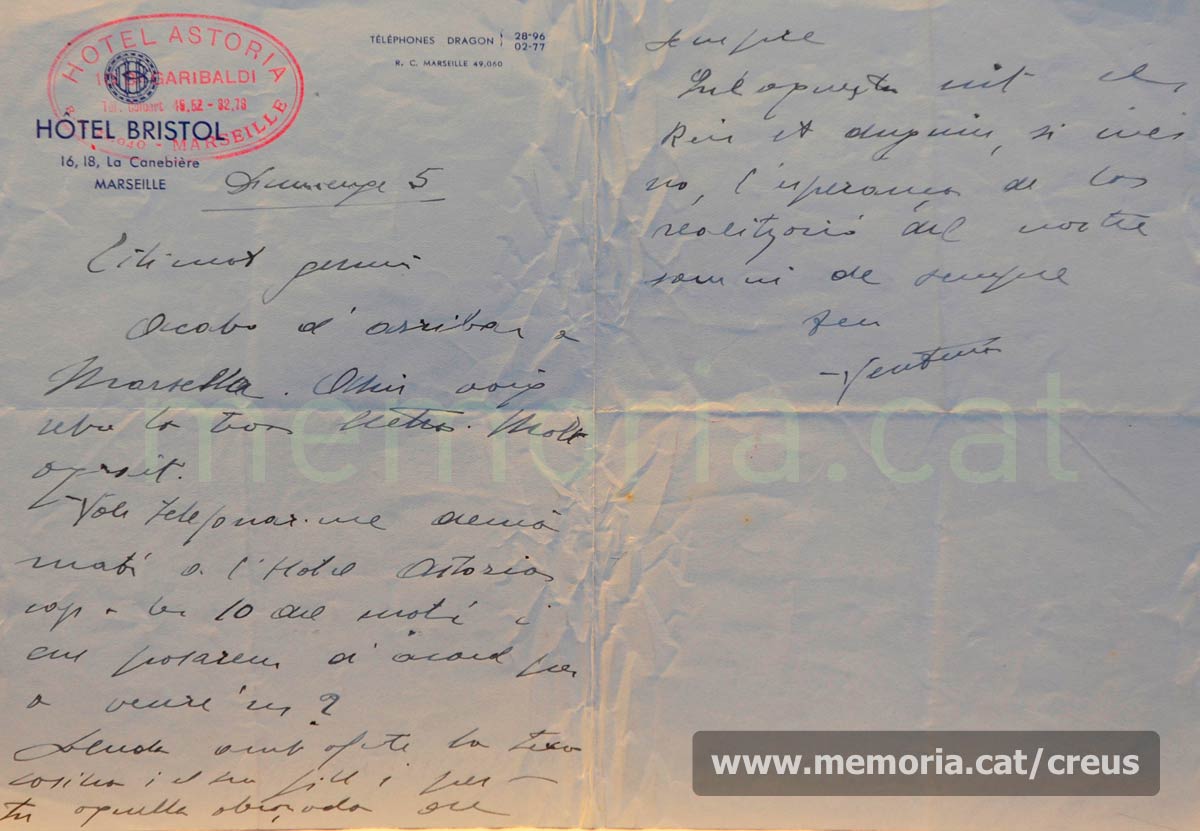 HOTEL ASTORIA
GARIBALDI
MARSEILLE
HÔTEL BRISTOL
16, 18, La Canebière
MARSEILLE
TÉLÉPHONES DRAGON 28-96
02-77
R. C. MARSEILLE 49,060
Diumenge 5
Estimat germà
Acabo d'arribar a
Marsella. Ahir vaig
rebre la teva lletra. Molt
agraït.
Vols telefonar-me demà
matí a l'Hotel Astoria
cap a les 10 del matí i
ens posarem d'acord per
a veure'ns?
Saluda amb afecte la teva
cosina i el seu fill i per
tu aquella abraçada de
sempre
Que aquesta nit els
Reis et duguin, si més
no, l'esperança de la
realització del nostre
somni de sempre
teu
Ventura
memoria.cat
www.memoria.cat/creus